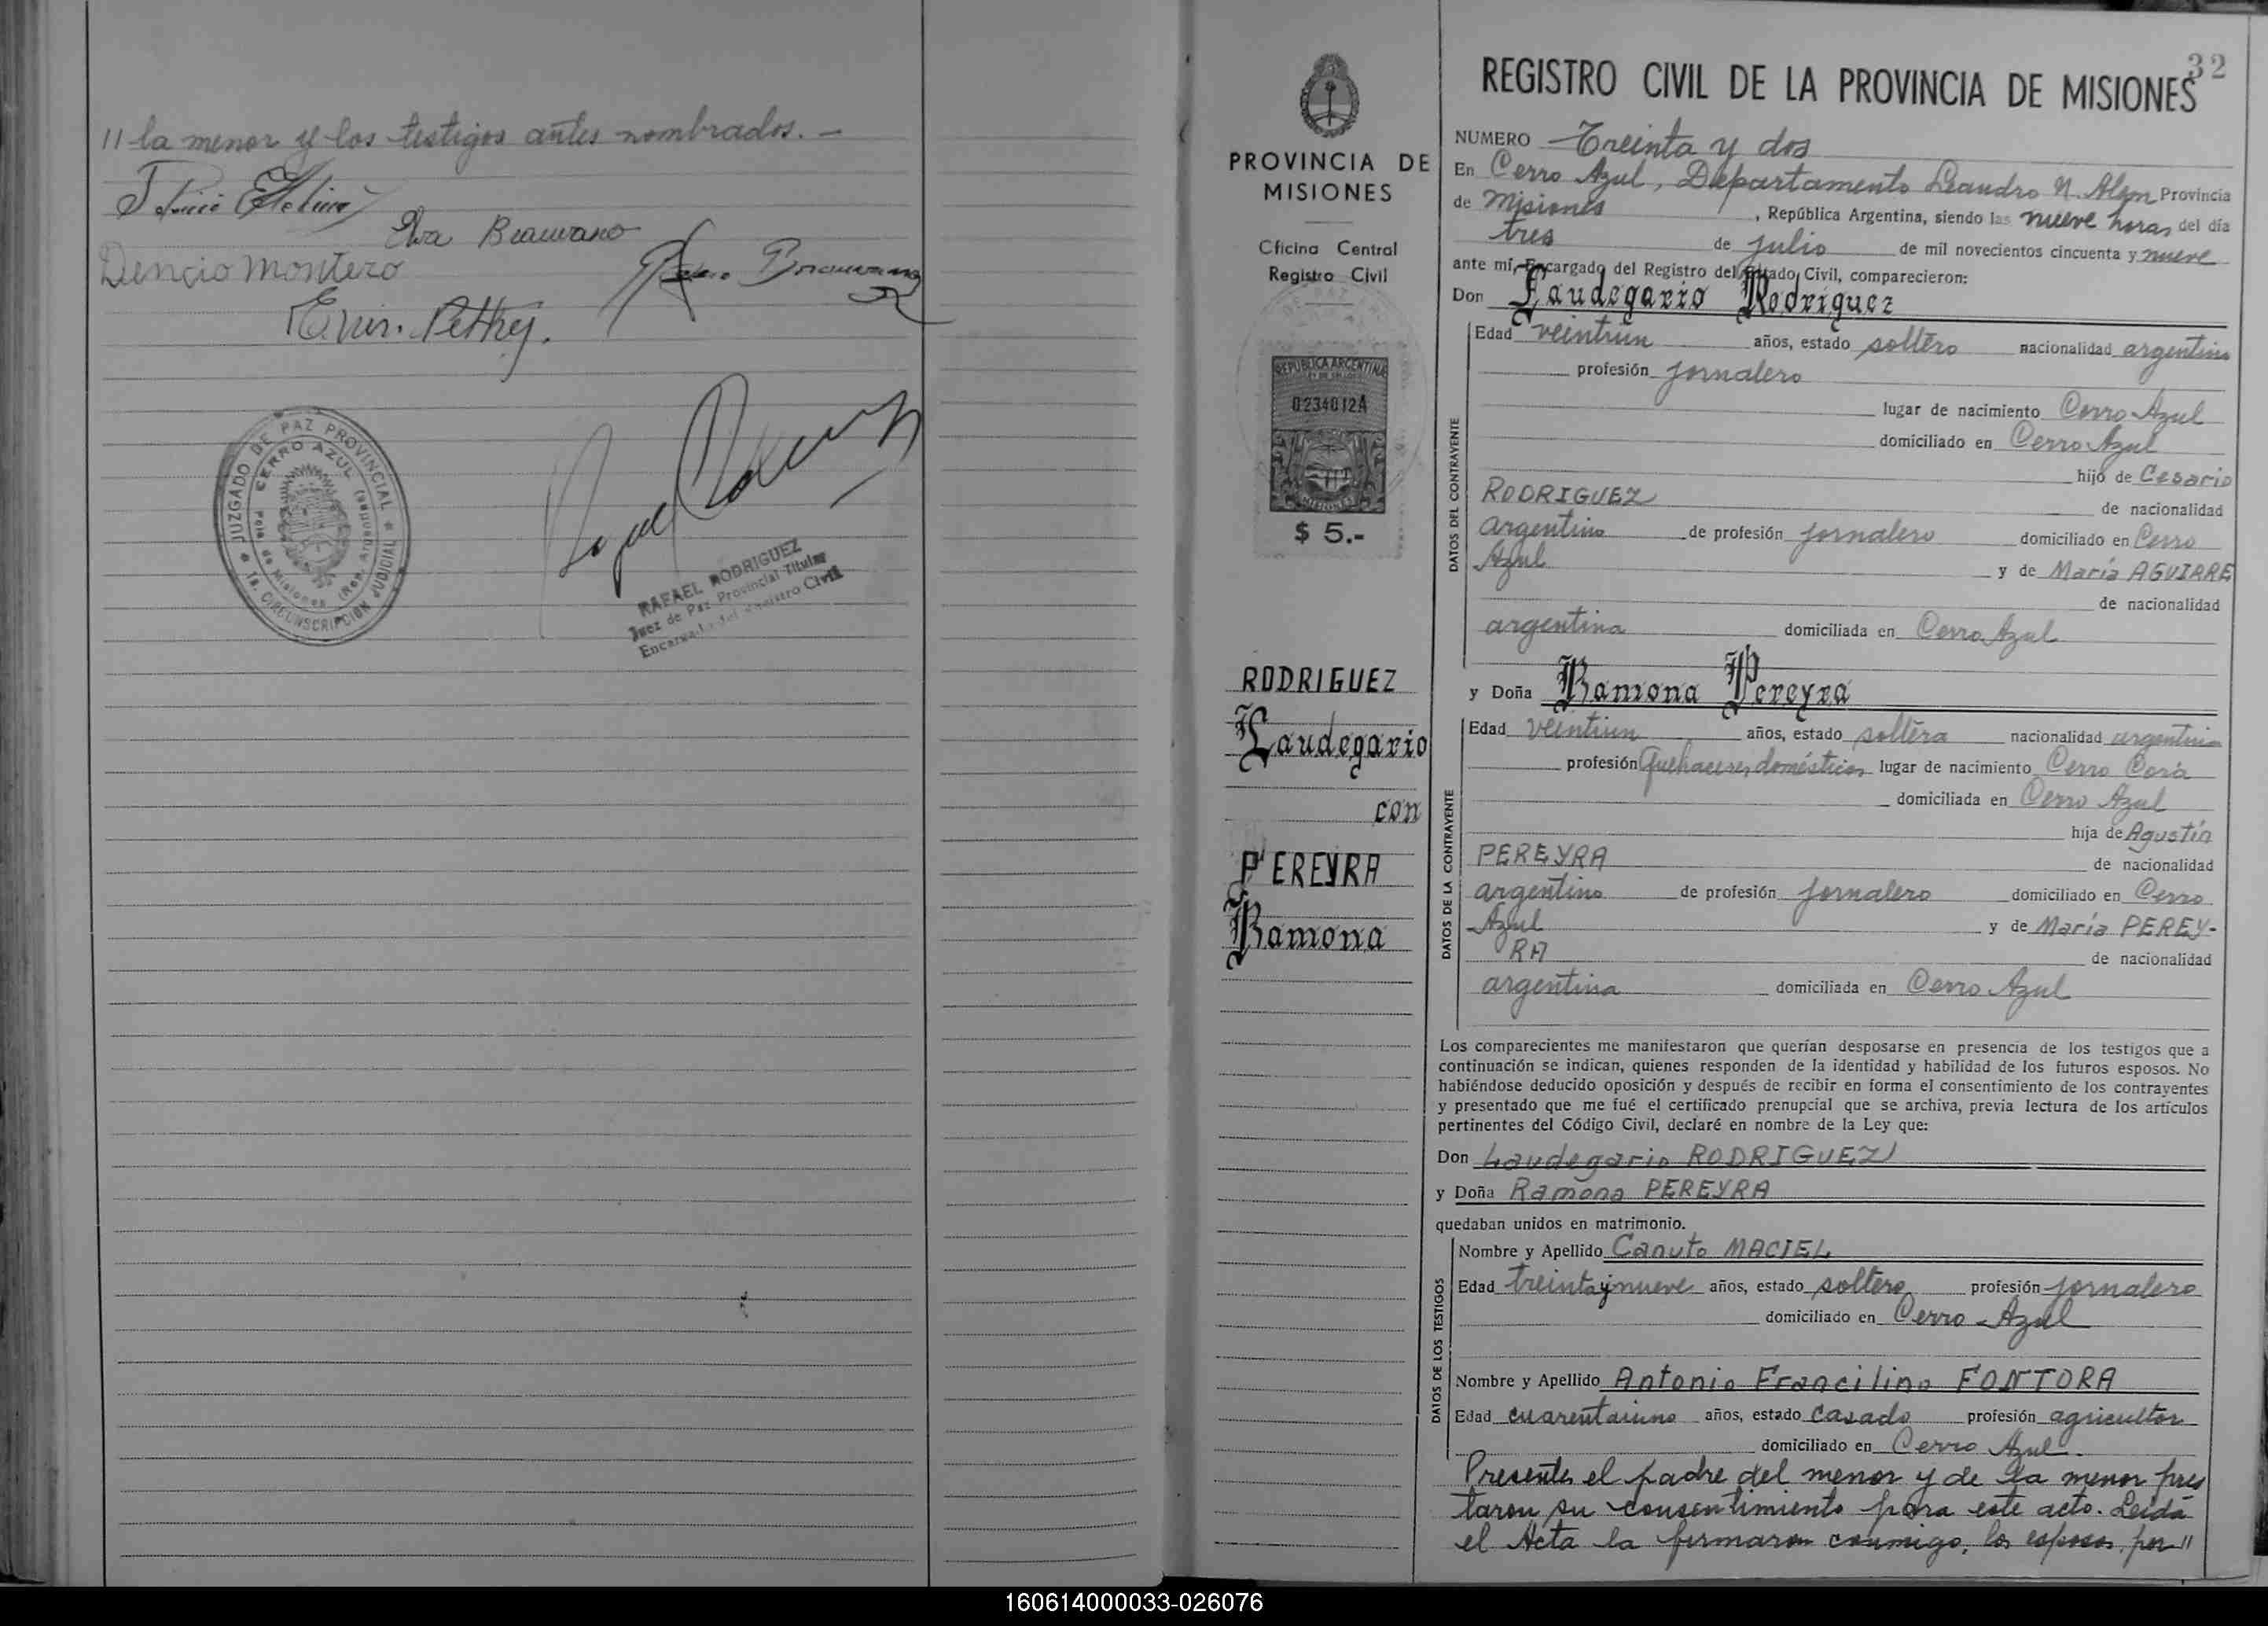 // la menor y los testigos antes nombrados. -
Dencio Montero
JUZGADO DE PAZ PROVINCIAL
CERRO AZUL
1a. CIRCUNSCRIPCION JUDICIAL
RAFAEL RODRIGUEZ
Juez de Paz Provincial Titular
Encargado del Registro Civil
PROVINCIA DE
MISIONES
Oficina Central
Registro Civil
REPUBLICA ARGENTINA
0234012A
MISIONES
$ 5.-
RODRIGUEZ
Laudegario
con
PEREYRA
Ramona
32
REGISTRO CIVIL DE LA PROVINCIA DE MISIONES
NUMERO Treinta y dos
En Cerro Azul, Departamento Leandro N. Alem Provincia
de Misiones, República Argentina, siendo las nueve horas del día
tres de julio de mil novecientos cincuenta y nueve
ante mí, Encargado del Registro del Estado Civil, comparecieron:
Don Laudegario Rodriguez
DATOS DEL CONTRAYENTE
Edad veintiun años, estado soltero nacionalidad argentino
profesión jornalero
lugar de nacimiento Cerro Azul
domiciliado en Cerro Azul
hijo de Cesario
RODRIGUEZ de nacionalidad
argentino de profesión jornalero domiciliado en Cerro
Azul y de María AGUIRRE
de nacionalidad
argentina domiciliada en Cerro Azul
y Doña Ramona Pereyra
DATOS DE LA CONTRAYENTE
Edad veintiun años, estado soltera nacionalidad argentina
profesión Quehaceres domésticos lugar de nacimiento Cerro Corá
domiciliada en Cerro Azul
hija de Agustín
PEREYRA de nacionalidad
argentino de profesión jornalero domiciliado en Cerro
Azul y de María PEREY-
RA de nacionalidad
argentina domiciliada en Cerro Azul
Los comparecientes me manifestaron que querían desposarse en presencia de los testigos que a
continuación se indican, quienes responden de la identidad y habilidad de los futuros esposos. No
habiéndose deducido oposición y después de recibir en forma el consentimiento de los contrayentes
y presentado que me fué el certificado prenupcial que se archiva, previa lectura de los artículos
pertinentes del Código Civil, declaré en nombre de la Ley que:
Don Laudegario RODRIGUEZ
y Doña Ramona PEREYRA
quedaban unidos en matrimonio.
DATOS DE LOS TESTIGOS
Nombre y Apellido Canuto MACIEL
Edad treinta y nueve años, estado soltero profesión jornalero
domiciliado en Cerro Azul
Nombre y Apellido Antonio Francilino FONTORA
Edad cuarentaiuno años, estado casado profesión agricultor
domiciliado en Cerro Azul.
Presentes el padre del menor y de la menor pres
taron su consentimiento para este acto. Leida
el Acta la firmaron conmigo, los esposos, por //
160614000033-026076